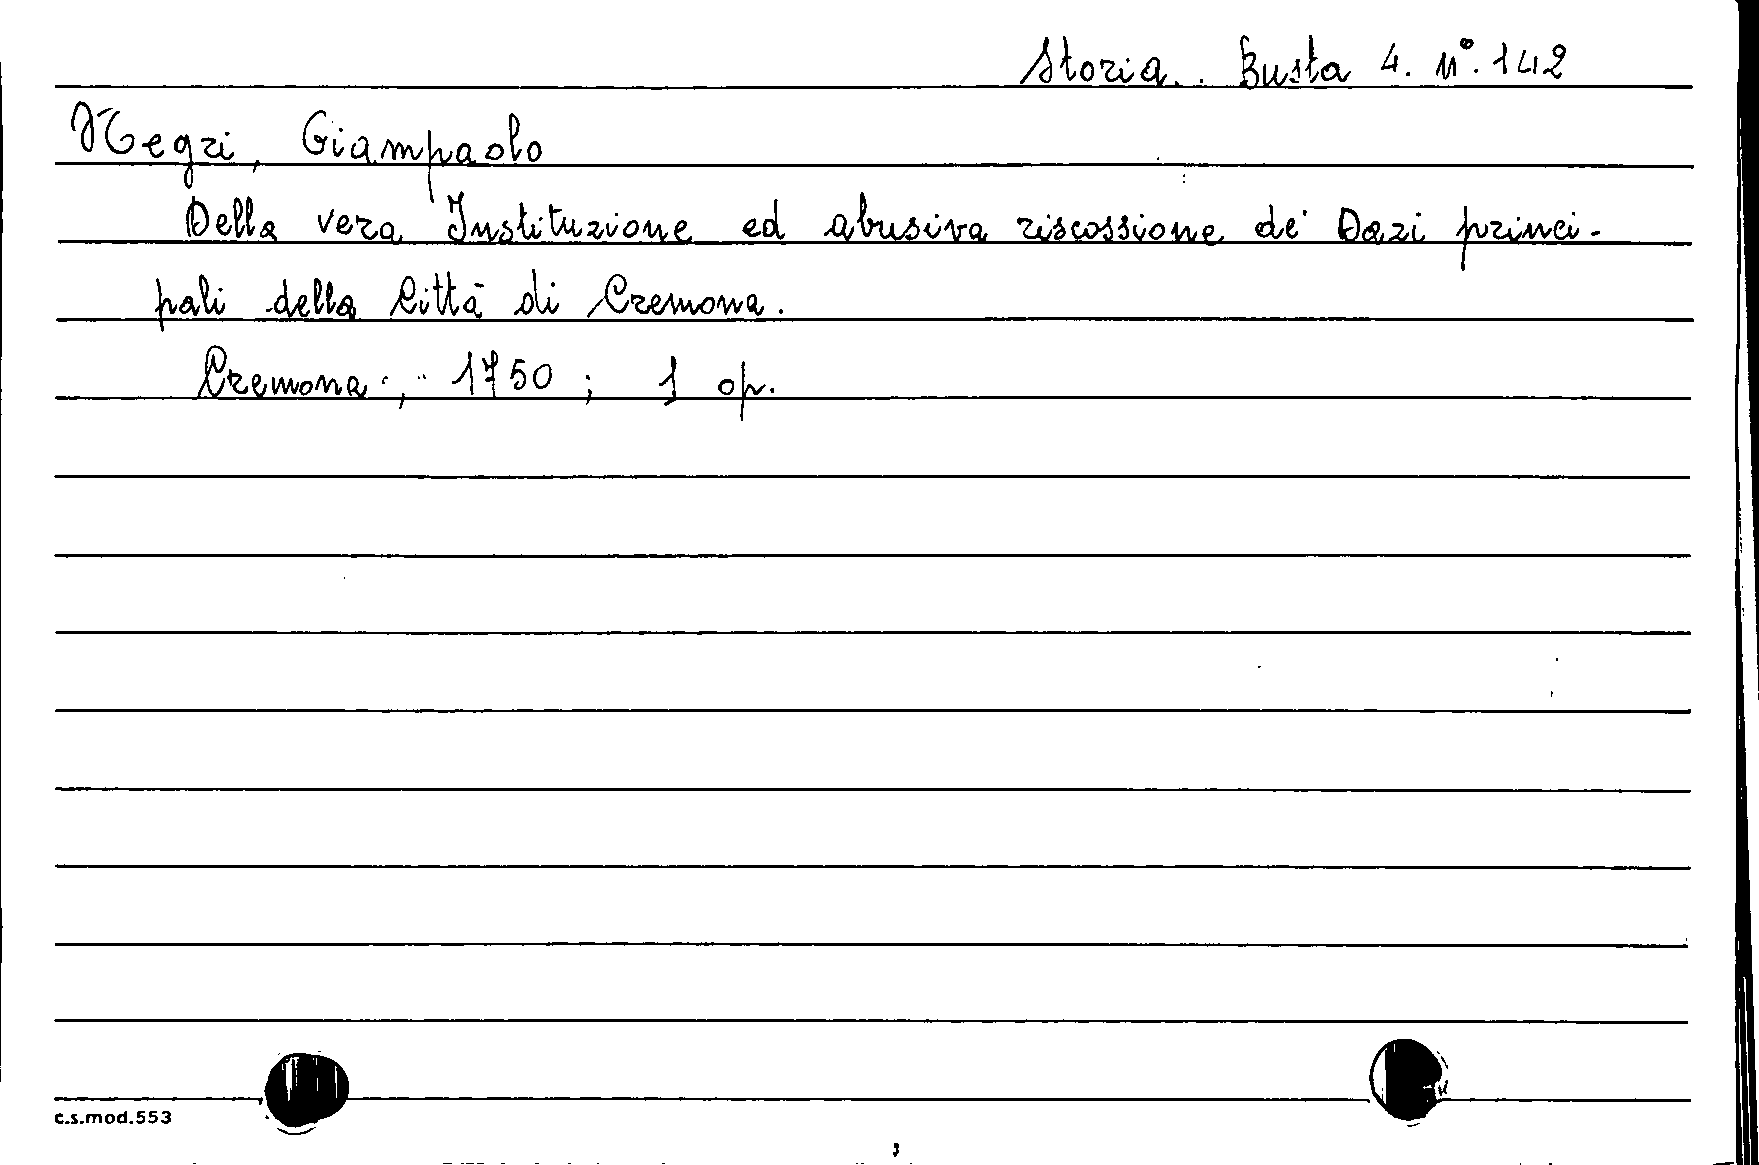 Storia. Busta 4. n°. 142
Negri, Giampaolo
Della vera Instituzione ed abusiva riscossione de' Dazi princi-
pali della Città di Cremona.
Cremona, 1750 ; 1 op.
c.s.mod.553